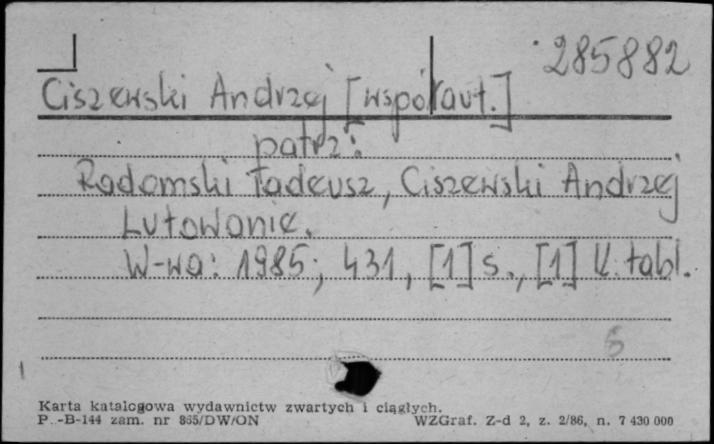 285882
Ciszewski Andrzej [współaut.]
patrz:
Radomski Tadeusz, Ciszewski Andrzej
Lutowanie.
W-wa: 1985; 431, [1] s., [1] k. tabl.
6
Karta katalogowa wydawnictw zwartych i ciągłych.
P.-B-144 zam. nr 865/DW/ON WZGraf. Z-d 2, z. 2/86, n. 7 430 000